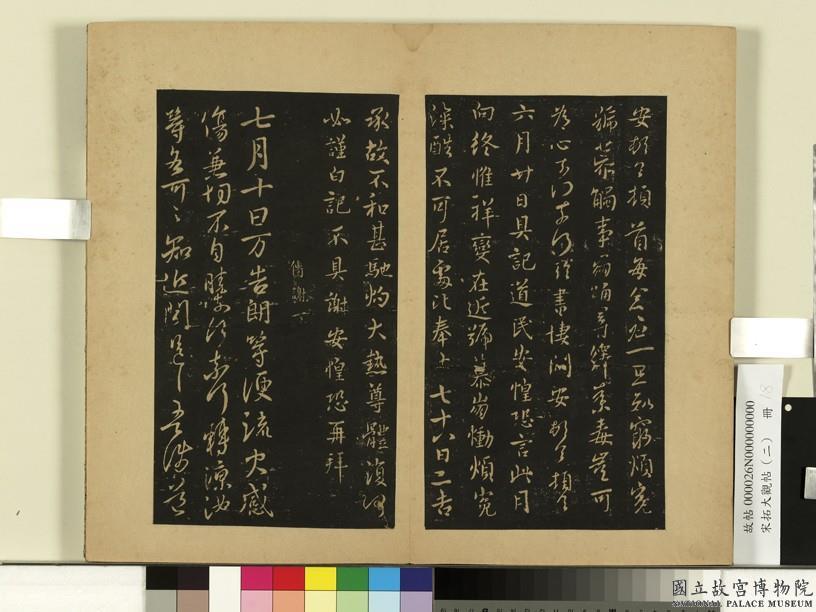 安頓首頓首每念君一旦知窮煩冤
號慕觸事崩踊尋繹荼毒豈可
為心奈何奈何臨書悽悶安頓首頓首
六月廿日具記道民安惶恐言此月
向終惟祥變在近號慕崩慟煩冤
深酷不可居處比奉十七十八日二告
承故不和甚馳灼大熱尊體復何
如謹白記不具謝安惶恐再拜
七月十日万告朗等便流火感
傷兼切不自勝奈何奈何轉涼汝
等各可可知近聞邑邑吾涉道
故帖000026N000000000
宋拓大觀帖(二) 冊 18
國立故宮博物院
NATIONAL PALACE MUSEUM